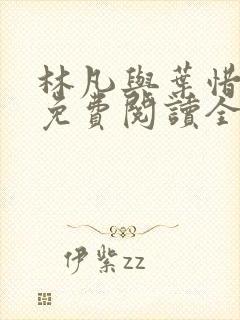 林凡與葉惜
免費閱讀全
伊紫zz